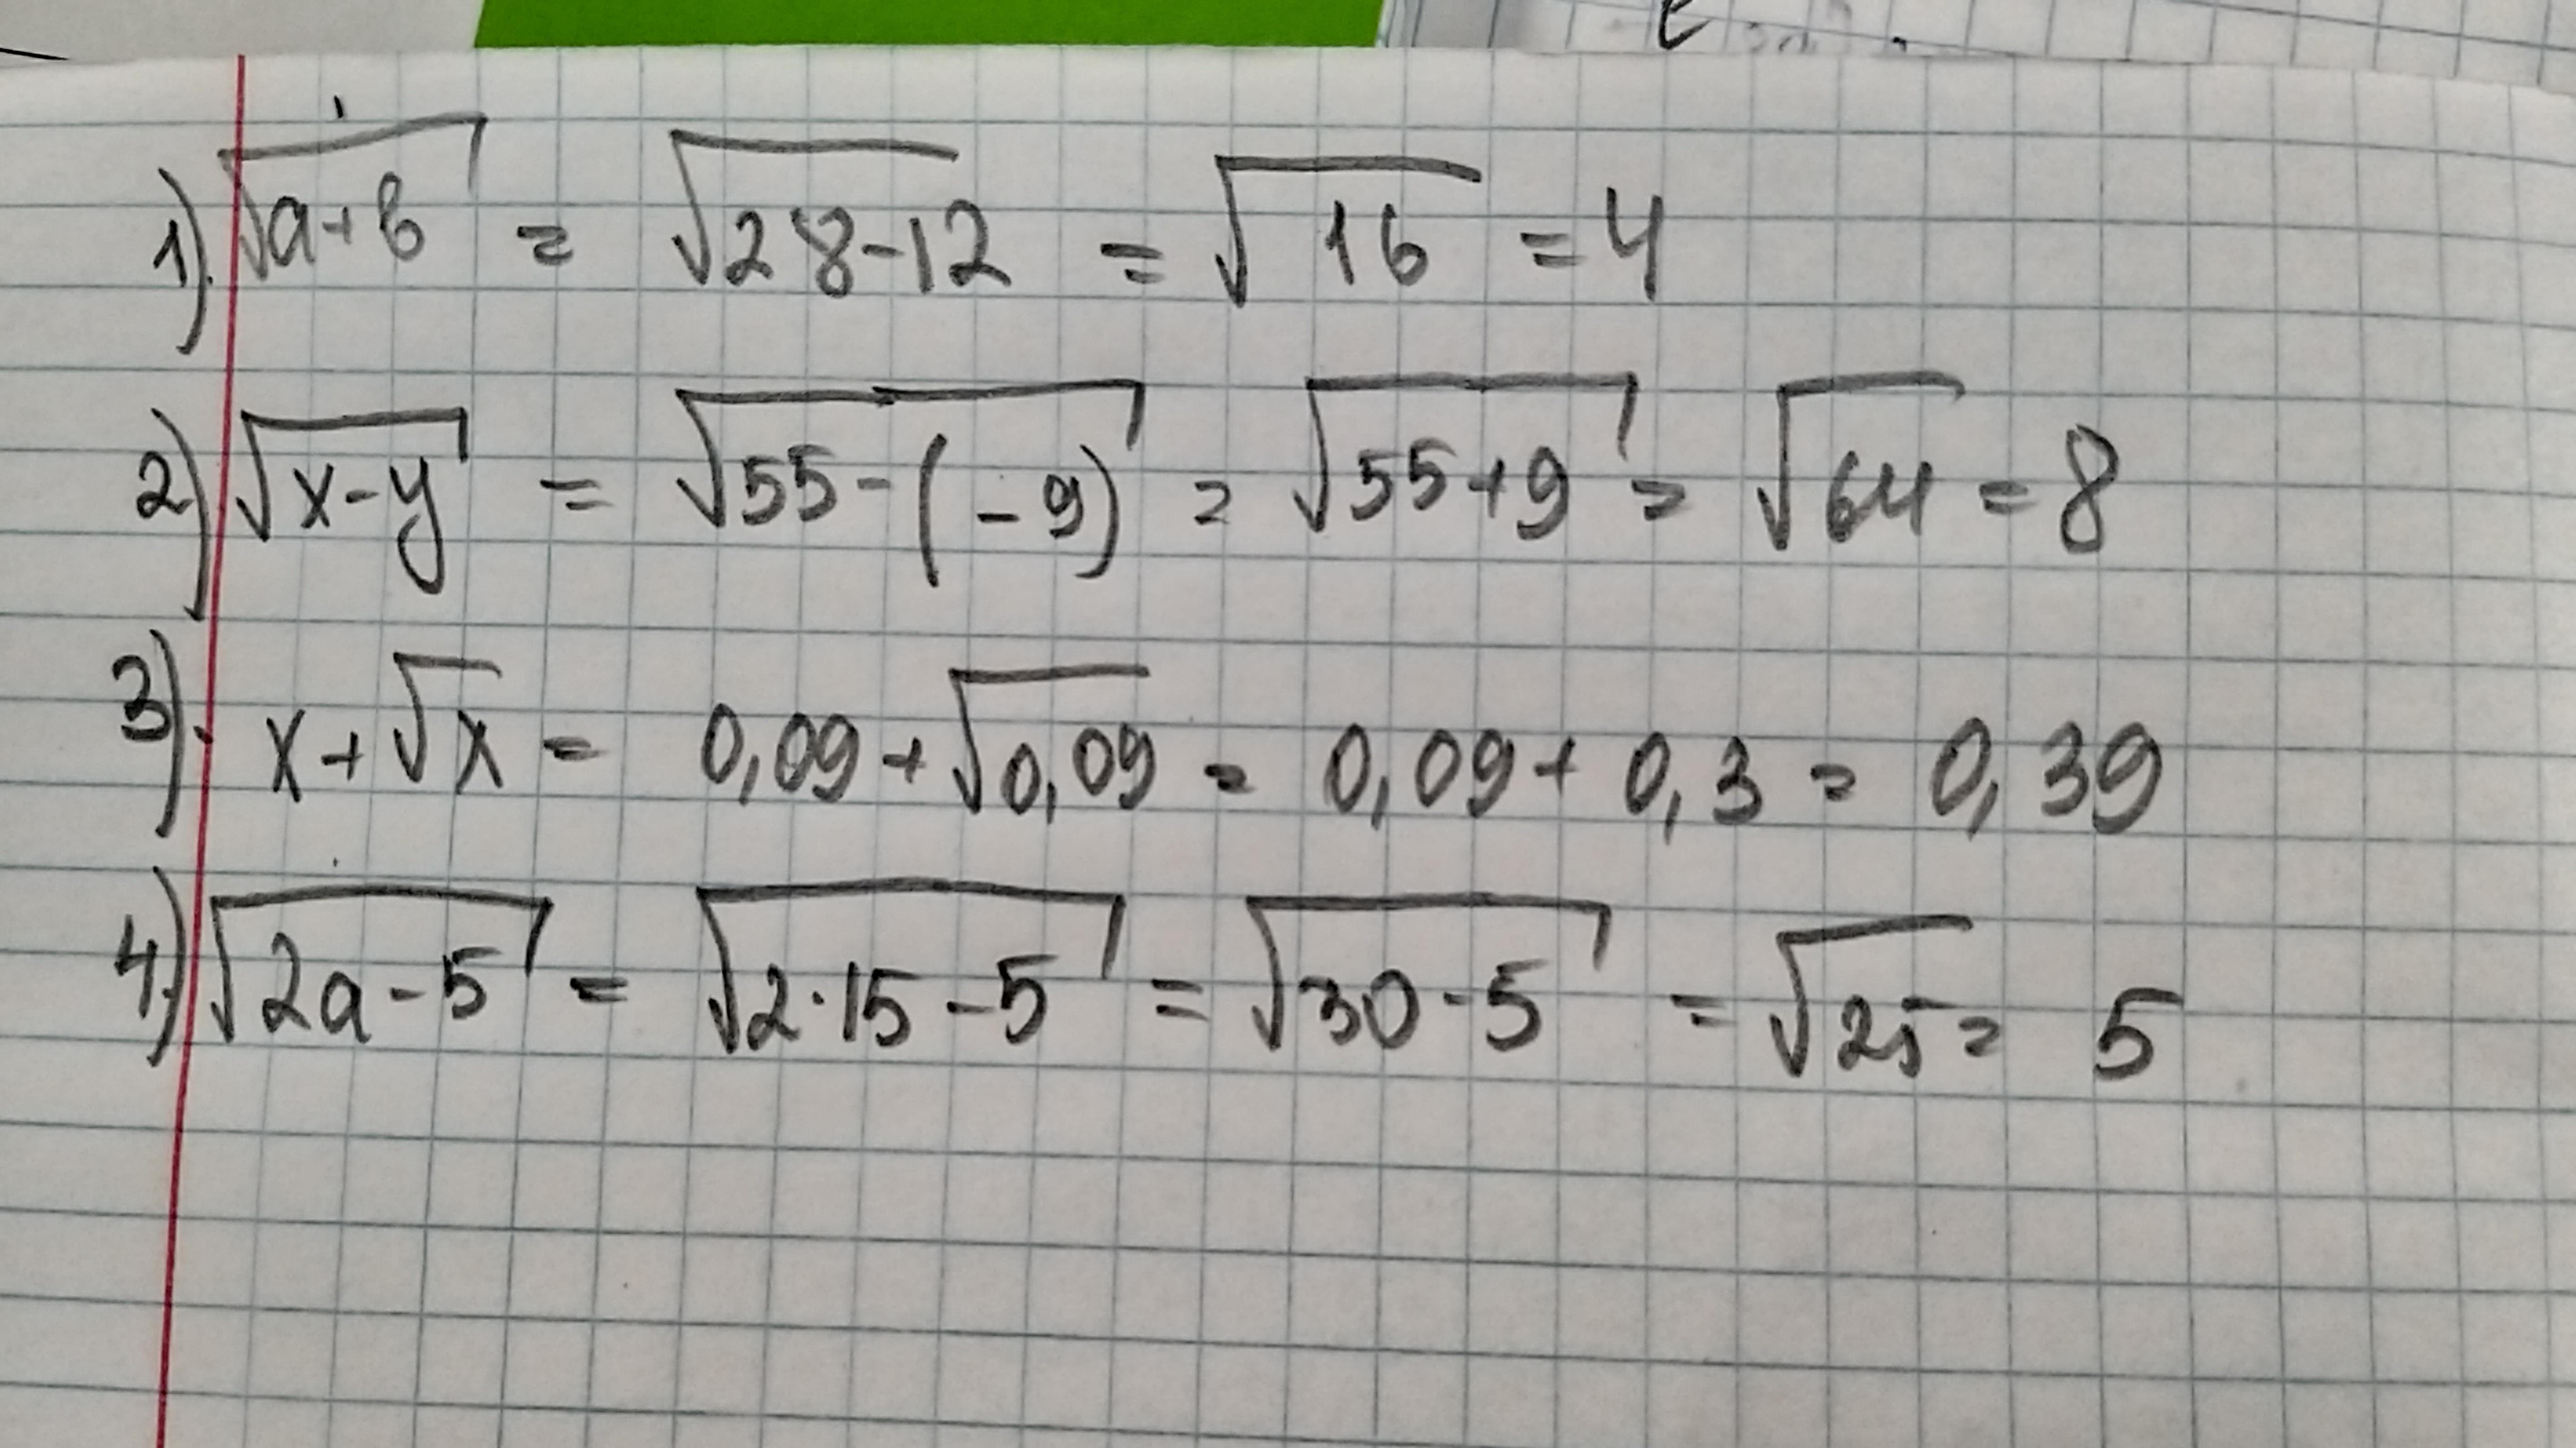 1). √a+b = √28-12 = √16 = 4
2) √x-y = √55-(-9) = √55+9 = √64 = 8
3). x+√x = 0,09+√0,09 = 0,09+0,3 = 0,39
4) √2a-5 = √2·15-5 = √30-5 = √25 = 5